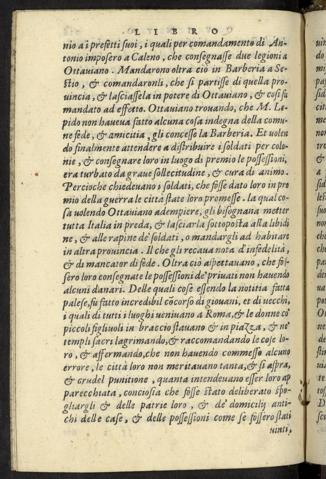 LIBRO
nio a i prefetti suoi, i quali per comandamento di An-
tonio imposero a Caleno, che consegnasse due legioni a
Ottauiano. Mandarono oltra ciò in Barberia a Se-
stio, & comandaronli, che si partisse di quella pro-
uincia, & lasciassela in potere di Ottauiano, & così fu
mandato ad effetto. Ottauiano trouando, che M. Le-
pido non haueua fatto alcuna cosa indegna della comu-
ne fede, & amicitia, gli concesse la Barberia. Et volen-
do finalmente attendere a distribuire i soldati per colo-
nie, & consegnare loro in luogo di premio le possessioni,
era turbato da graue sollecitudine, & cura di animo.
Percioche chiedeuano i soldati, che fosse dato loro in pre-
mio della guerra le città state loro promesse. la qual co-
sa volendo Ottauiano adempiere, gli bisognaua metter
tutta Italia in preda, & lasciarla sottoposta alla libidi
ne, & alle rapine de soldati, o mandargli ad habitare
in altra prouincia. Il che gli recaua nota d'infedeltà,
& di mancator di fede. Oltra ciò aspettauano, che fos-
sero loro consegnate le possessioni de' priuati non hauendo
alcuni danari. Delle quali cose essendo la notitia fatta
palese, fu fatto incredibil cõcorso di giouani, et di uecchi,
i quali di tutti i luoghi ueniuano a Roma, & le donne co'
piccoli figliuoli in braccio stauano & in piazza, & ne'
templi sacri lagrimando, & raccomandando le cose lo-
ro, & affermando, che non hauendo commesso alcuno
errore, le città loro non meritauano tanta, & sì aspra,
& crudel punitione, quanta intendeuano esser loro ap
parecchiata, conciosia che fosse stato deliberato spo-
gliargli & delle patrie loro, & de' domicilij anti-
chi delle case, & delle possessioni come se fossero stati
uinti,